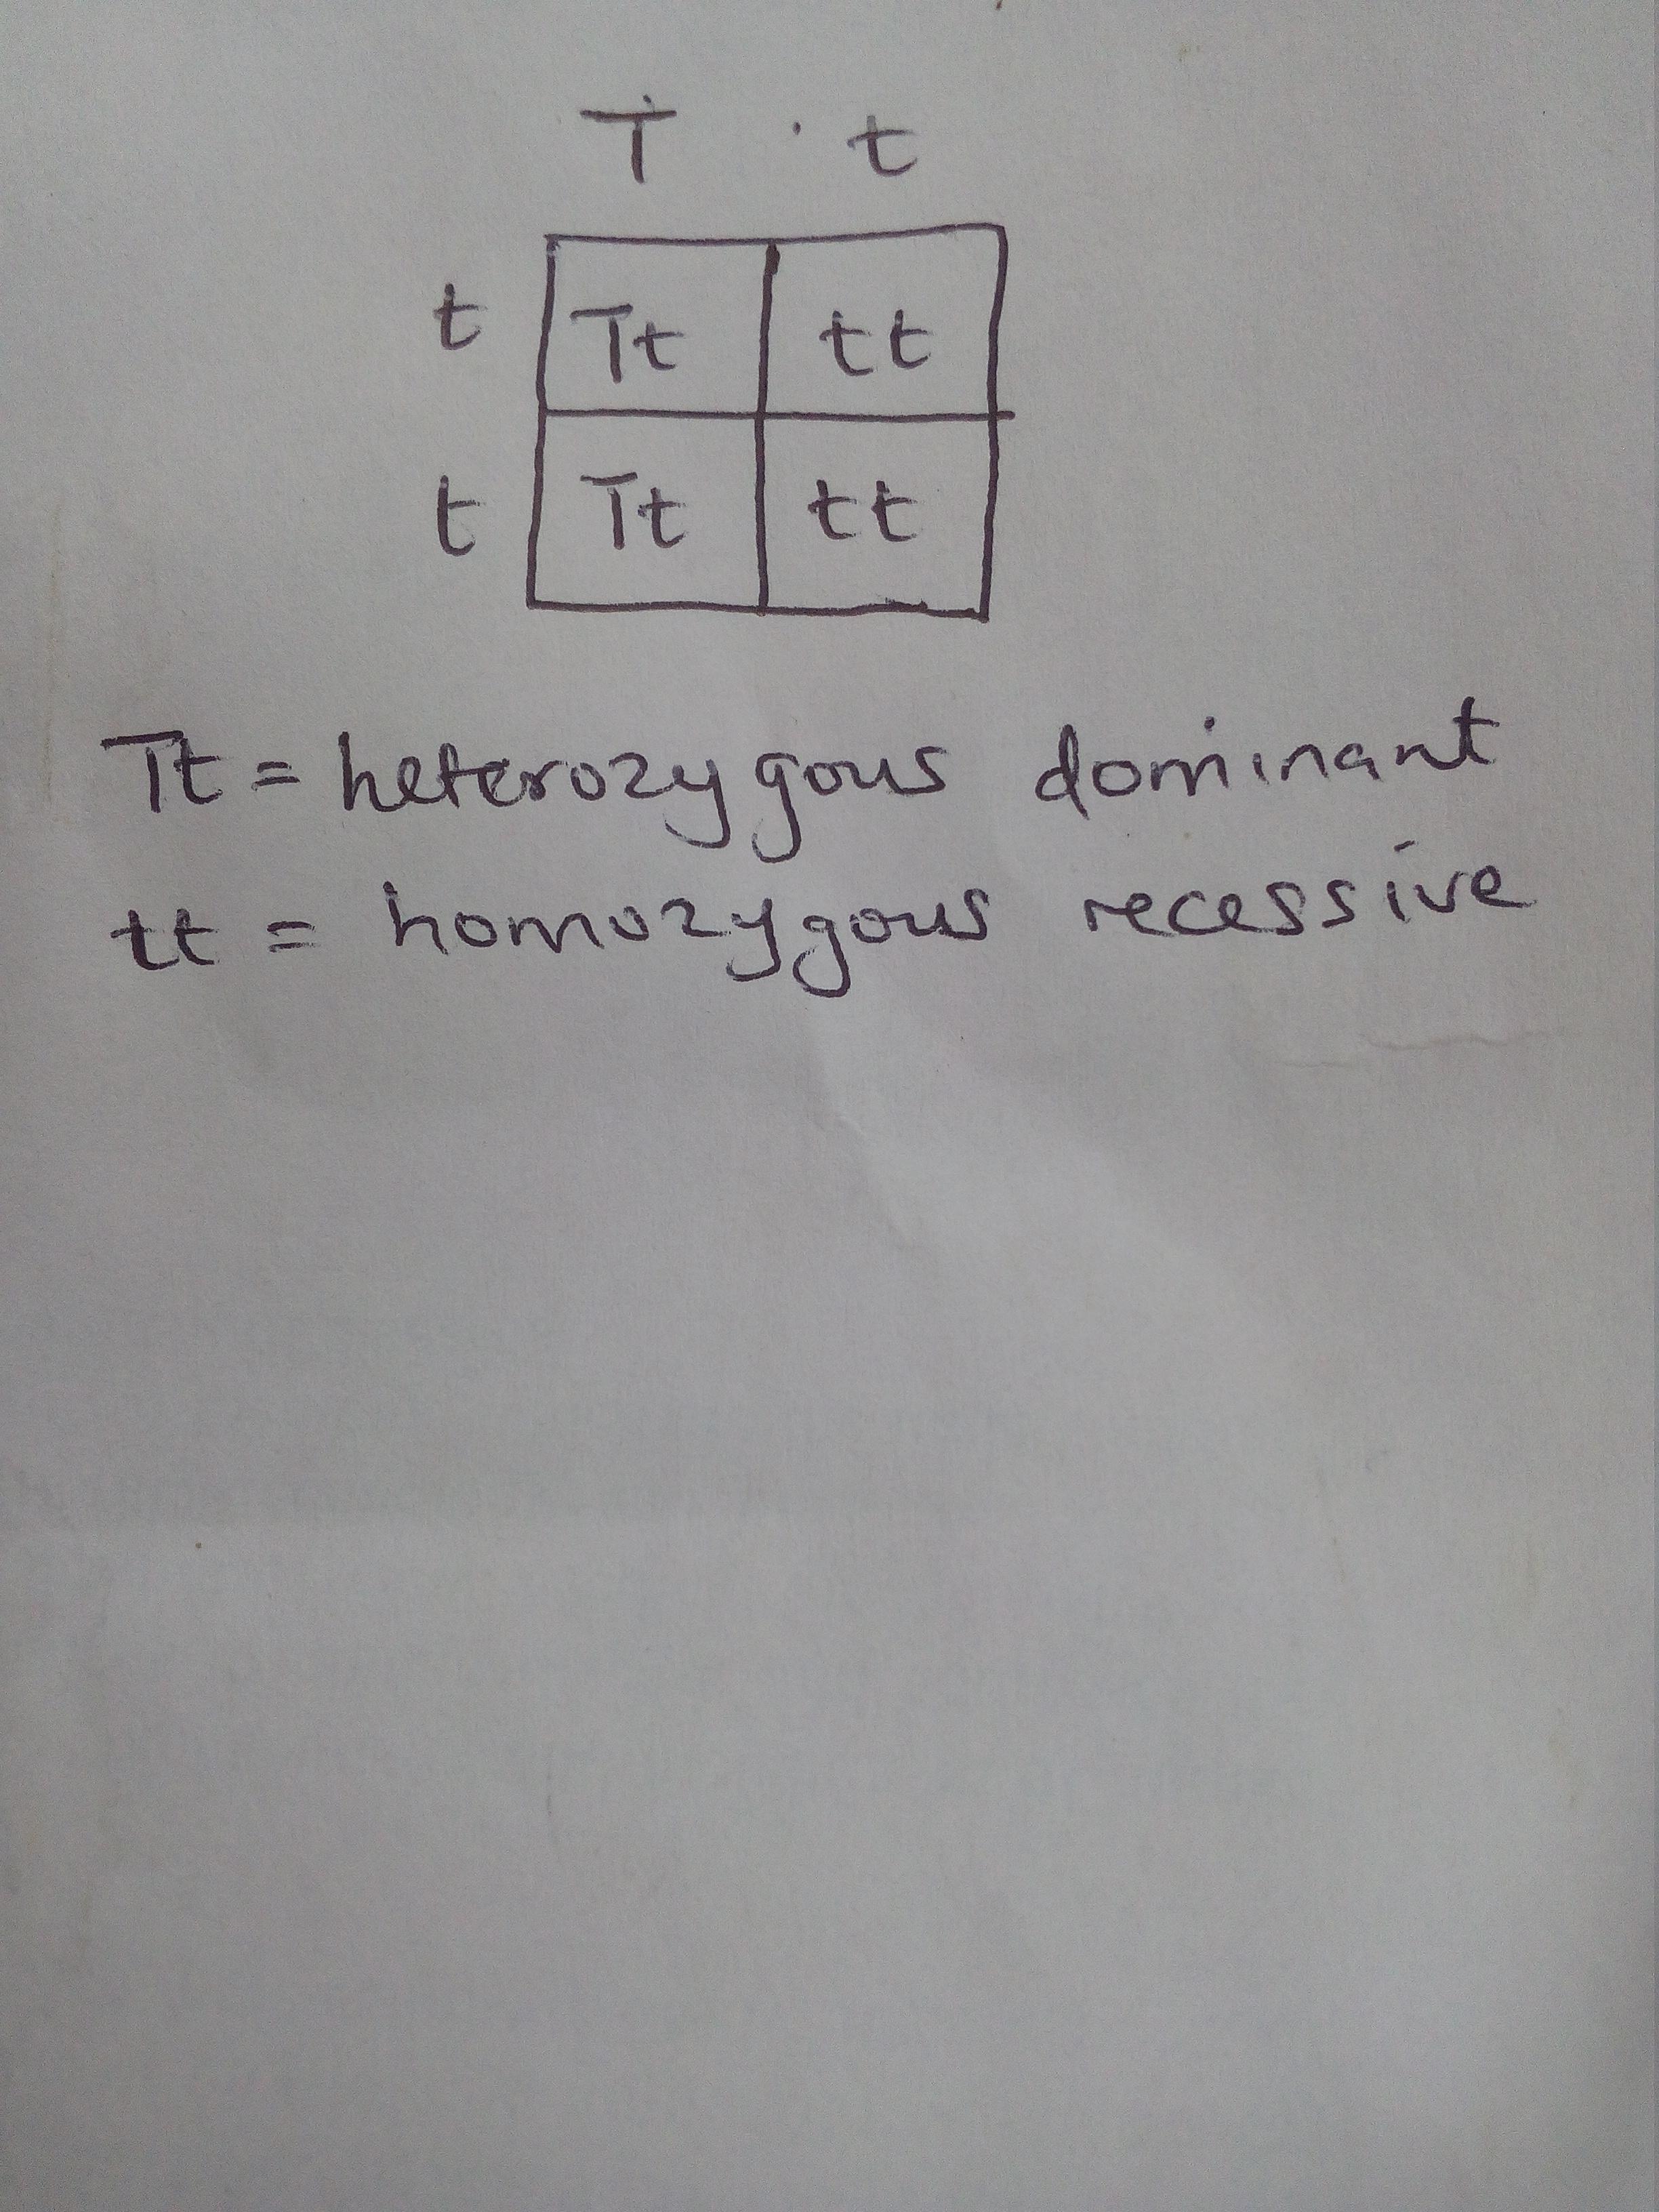 T t
t Tt tt
t Tt tt
Tt = heterozygous dominant
tt = homozygous recessive